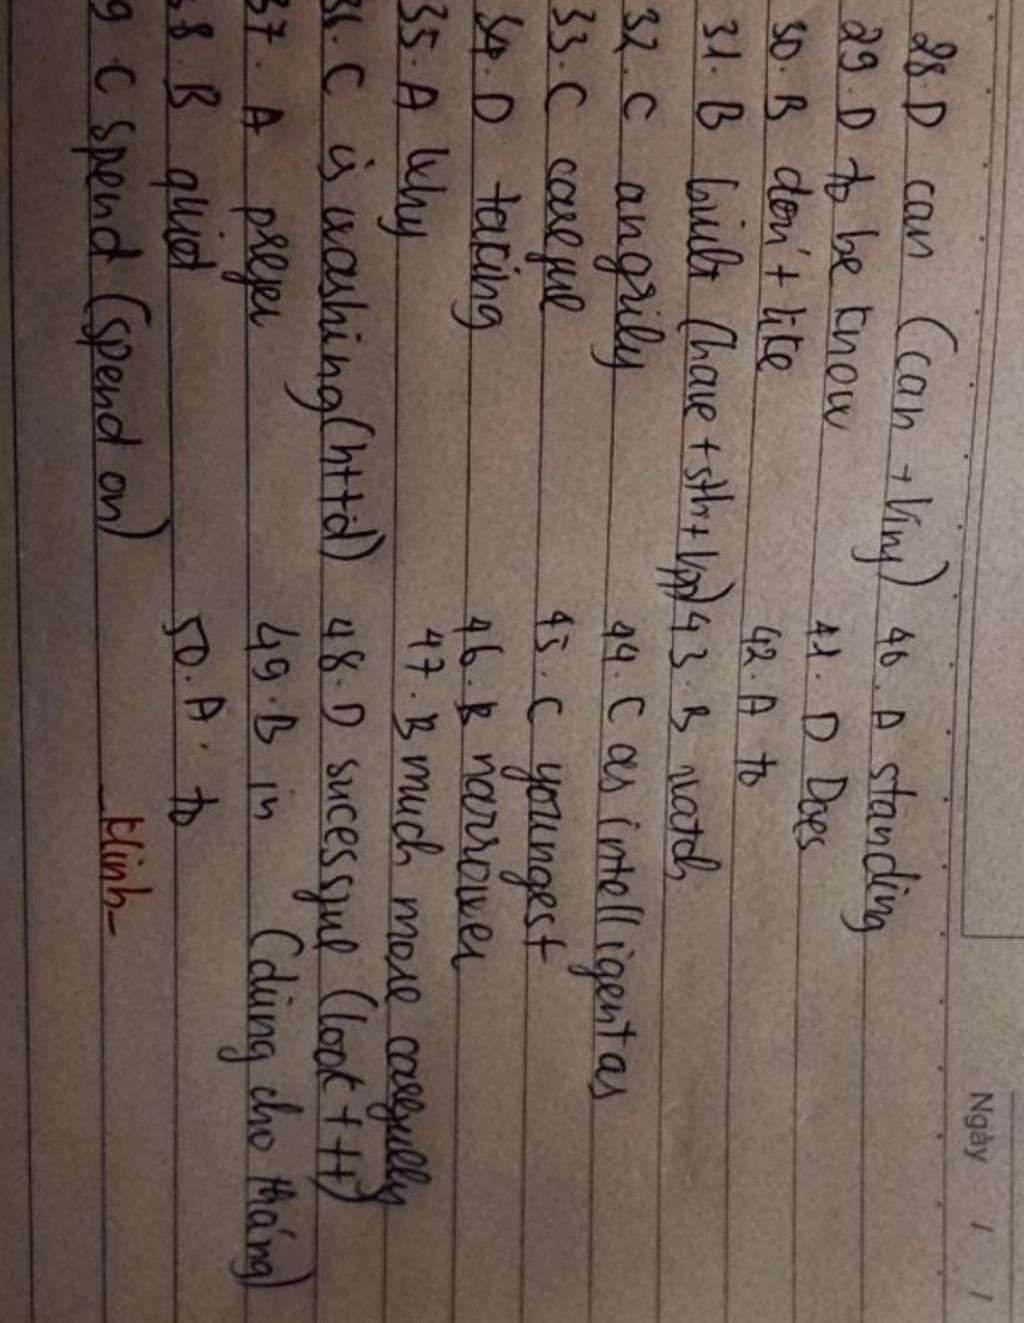 Ngày / /
28. D can (can + Vinf)
29. D to be know
30. B don't like
31. B built (have + sth + Vpp)
32. C angrily
33. C careful
34. D taking
35. A Why
36. C is washing (httd)
37. A prefer
38. B quiet
9 C spend (spend on)
40. A standing
41. D Does
42. A to
43. B watch
44. C as intelligent as
45. C youngest
46. B narrower
47. B much more carefully
48. D sucessful (look + tt)
49. B in (dùng cho tháng)
50. A. to